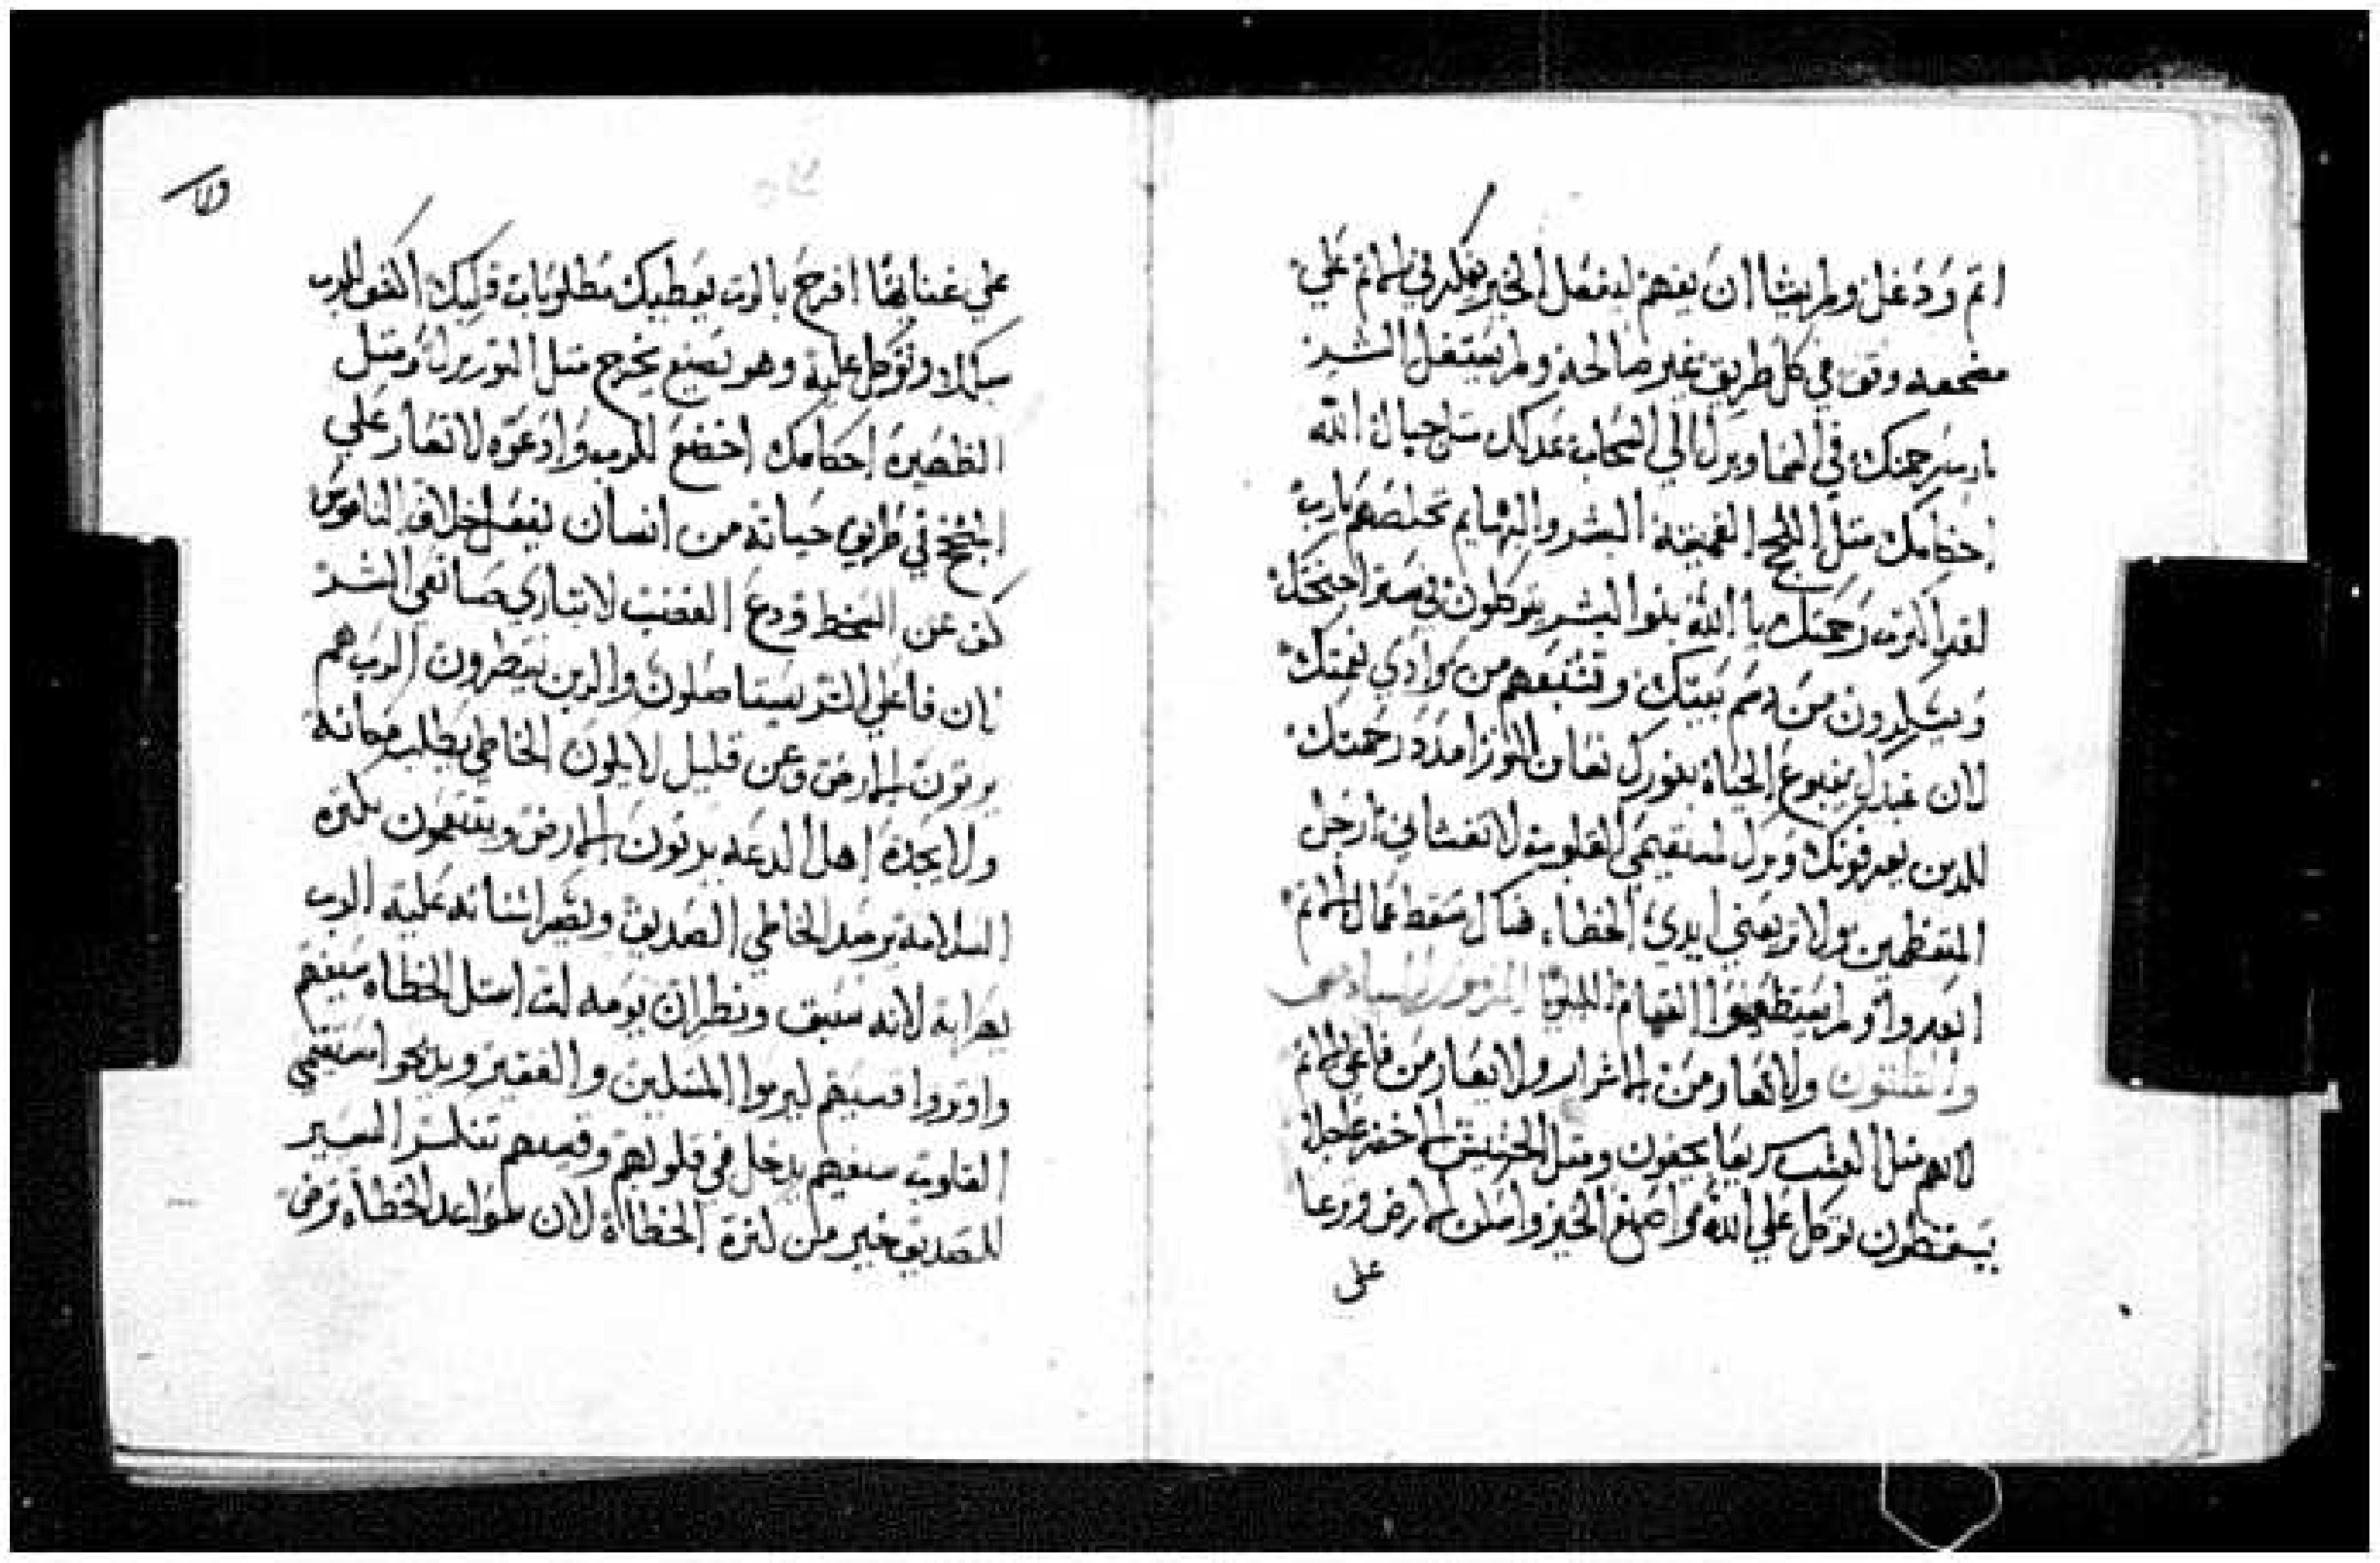 اتم ودغل ولم يشا ان يفهم ليفعل الخير يفكر في الاتم علي
مضجعه وقف في كل طريق غير صالحة ولم يستقل الشر
يارب رحمتك في السما وبرك الي السحاب عدلك متل جبال الله
احكامك متل اللجج العميقة البشر والبهايم تخلصهم يارب
لقد اكترت رحمتك يا الله بنوا البشر يتوكلون في ستر اجنحتك
ويسكرون من دسم بيتك وتشبعهم من وادي نعمتك
لان عندك ينبوع الحياة بنورك نعاين النور امدد رحمتك
للدين يعرفونك وبرك لمستقيمي القلوب لا تغشاني ارجل
المتعظمين ولا تزيعني ايدي الخطاه هناك سقط عمال الاتم
اندروا ولم يستطيعوا القيام المزمور السادس
والتلتون ولا تغار من الاشرار ولا تغار من فاعلي الاتم
لانهم متل العشب سريعا يجفون ومتل الحشيش الاخضر عاجلا
يسقطون توكل علي الله واصنع الخير واسكن الارض وترعا
علي
علي غناها افرح بالرب يعطيك مطلوبات قلبك اكشف للرب
سبيلك وتوكل علية وهو يصنع يخرج متل النور برك ومتل
الظهيرة احكامك اخضع للرب وادعوه لا تغار علي
المنجح في طريق حياته من انسان يفعل خلاف الناموس
كف عن السخط ودع الغضب لا تباري صانعي الشر
فان فاعلي الشر يستاصلون والدين ينتظرون الرب هم
يرتون الارض وعن قليل لا يكون الخاطي يطلب مكانة
ولا يجده اهل الدعه يرتون الارض ويتنعمون بكترة
السلامة يرصد الخاطي الصديق ويصر اسنانه علية الرب
يهزا به لانه سبق ونظر ان يومه ات استل الخطاه سيفهم
واوتروا قسيهم ليرموا المسكين والفقير ويدبحوا مستقيمي
القلوب سيفهم يدخل في قلوبهم وقسيهم تنكسر اليسير
للصديق خير من كترة الخطاة لان سواعد الخطاة ترض